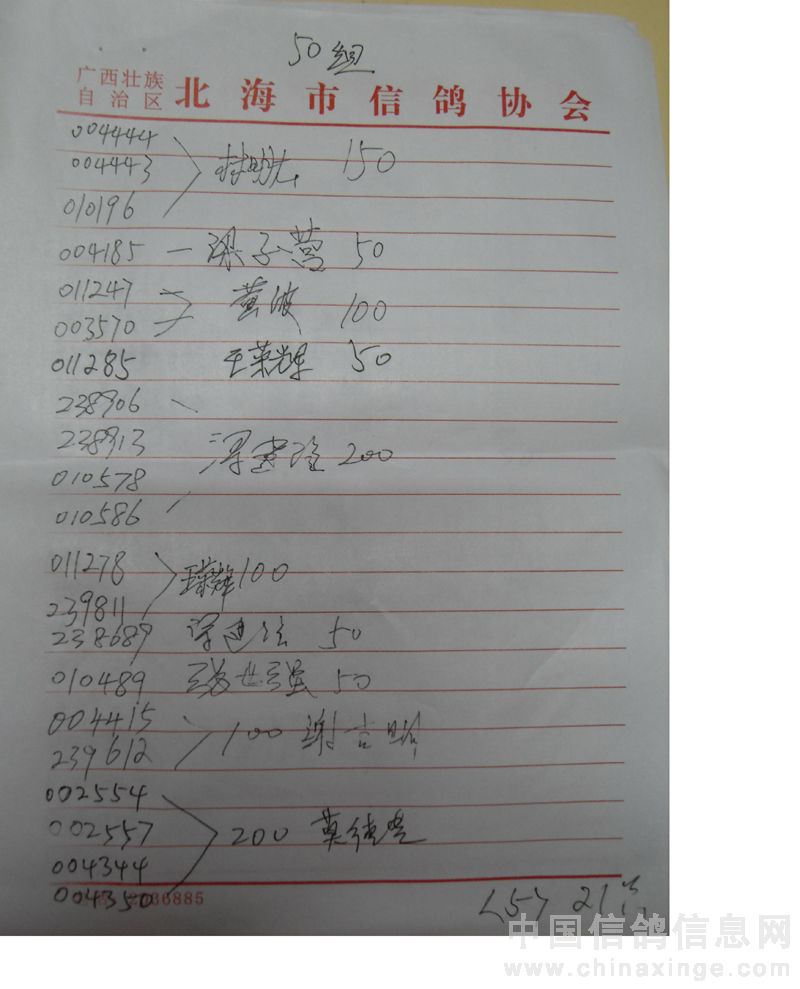 50组
广西壮族
自治区 北海市信鸽协会
004444
004443 150
010196
004185 一 梁子营 50
011247 黄波
003570 100
011285 王荣辉 50
238906
238913 200
010578
010586
011278 王荣辉 100
239811
238689 50
010489 世强 50
004415 100 谢吉
239612
002554
002557 200 莫
004344
004350 36885
<5> 21羽
中国信鸽信息网
www.chinaxinge.com